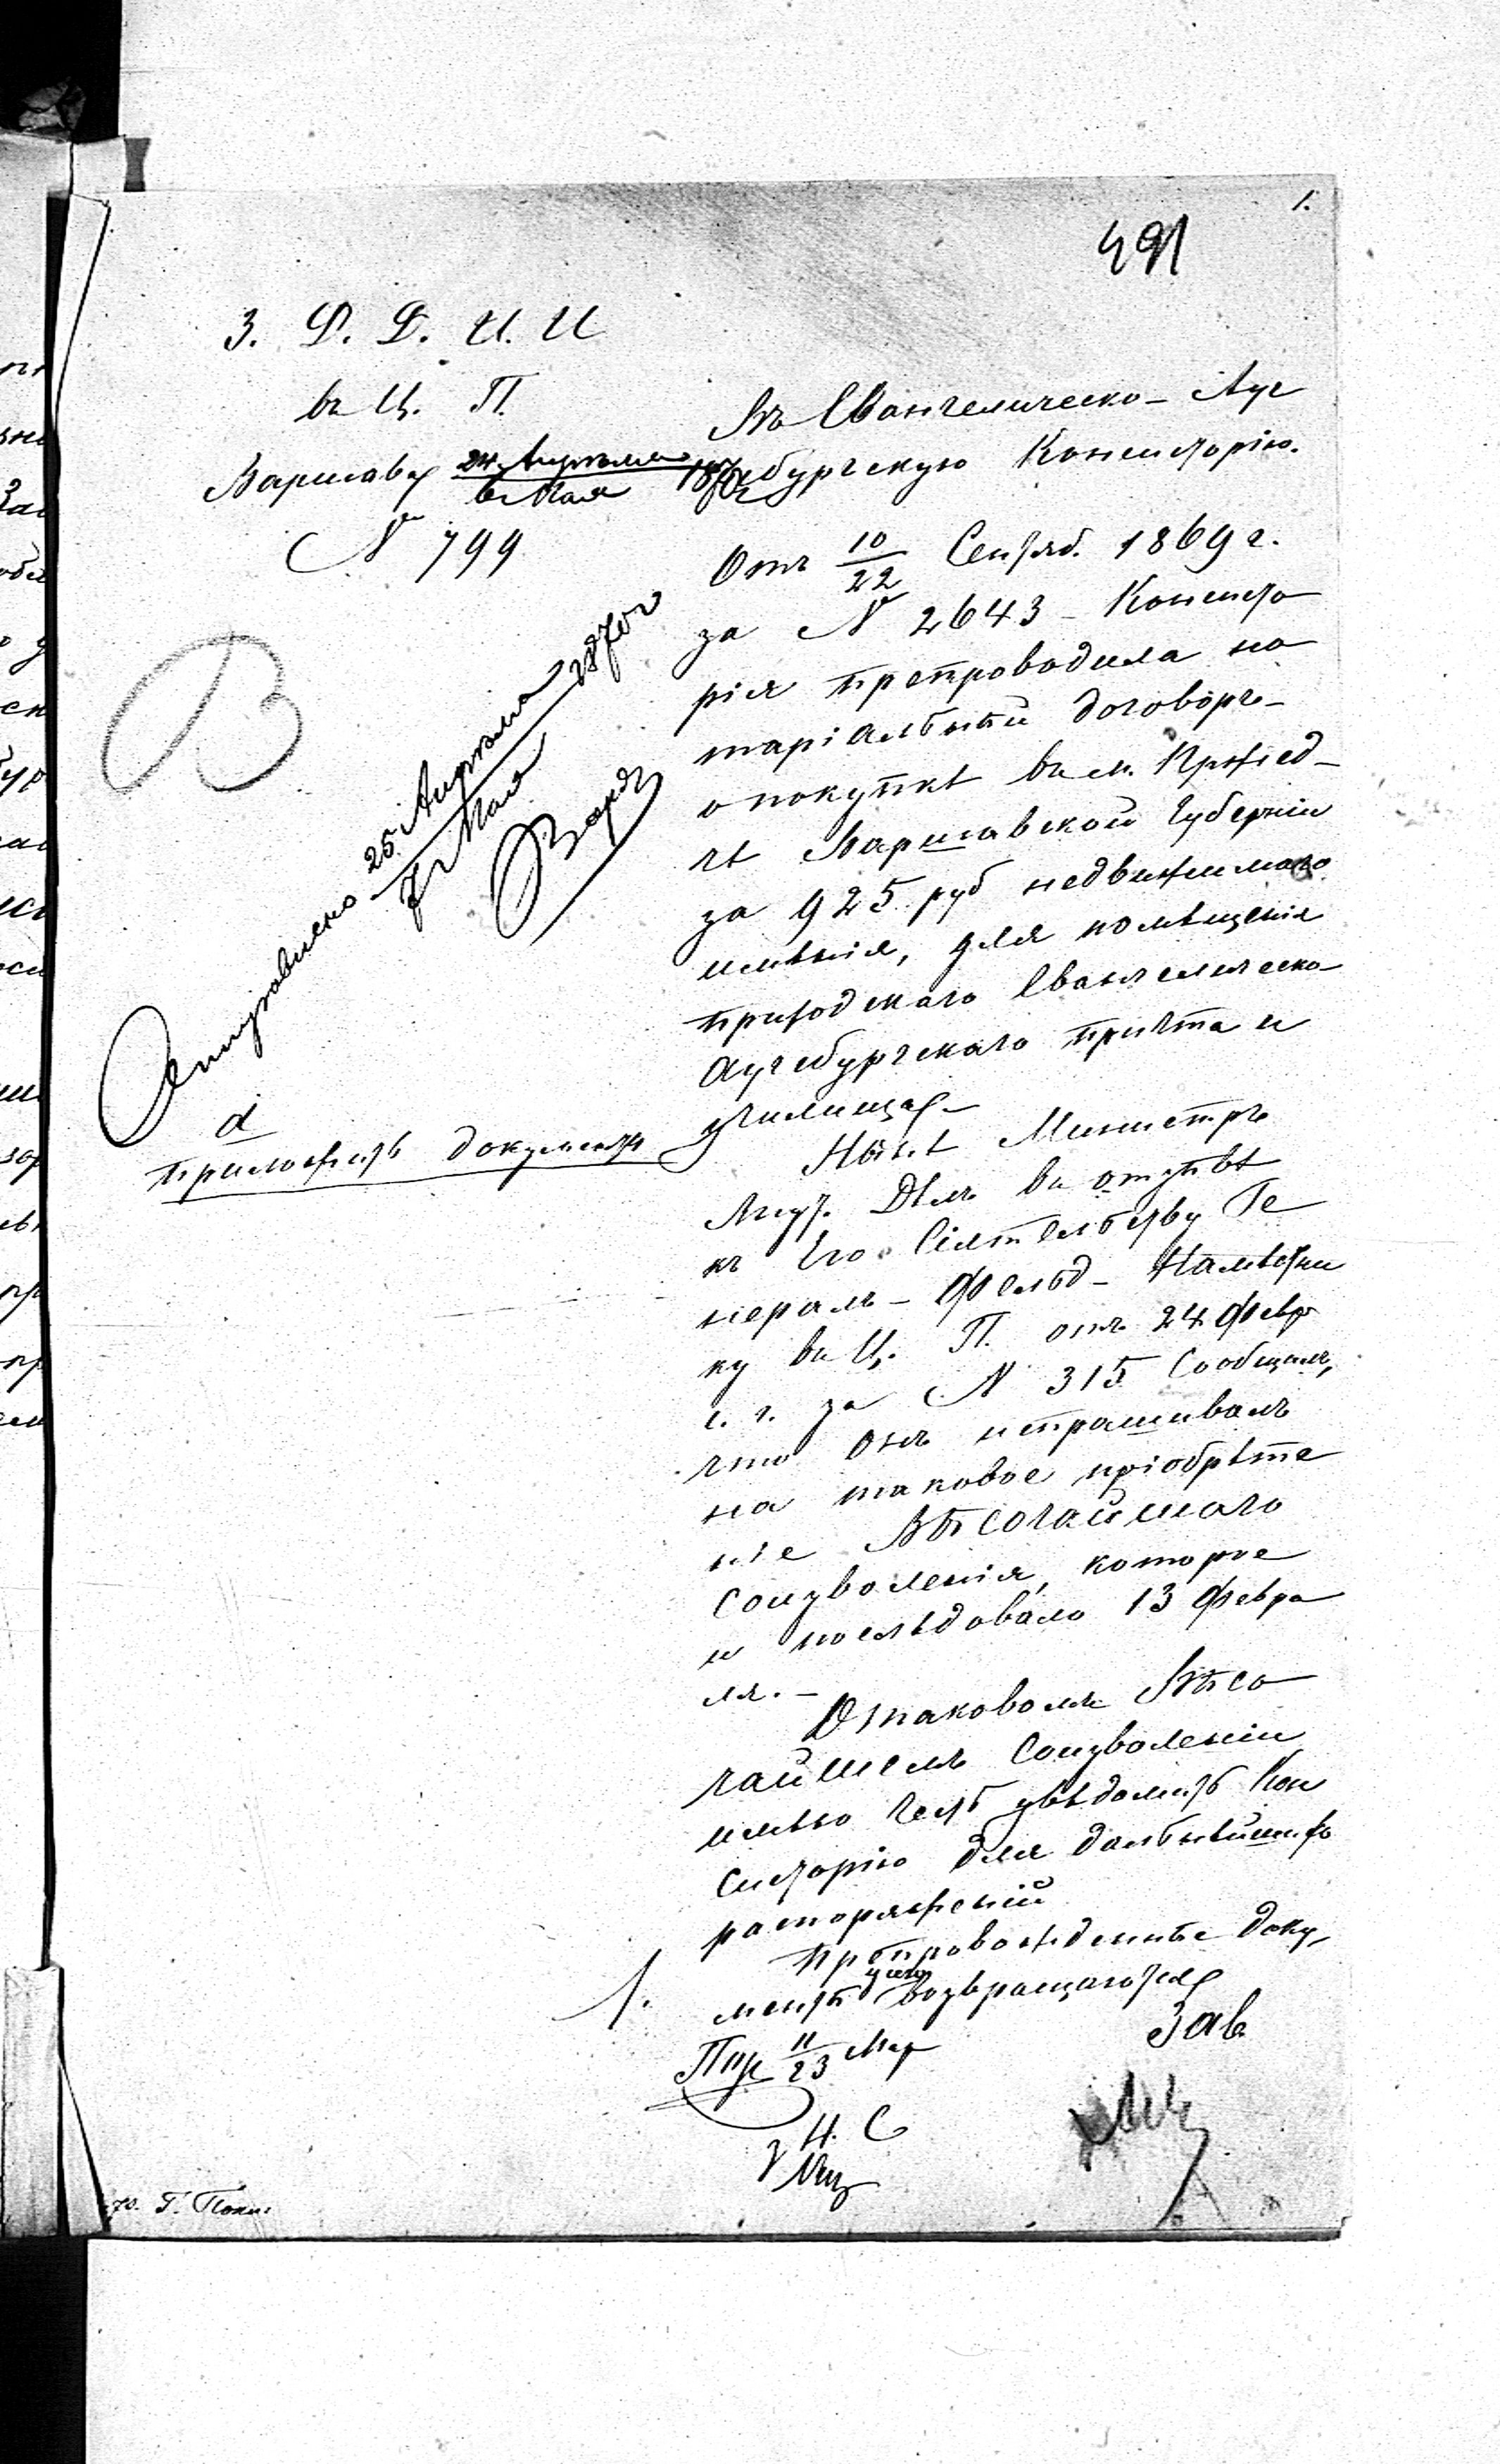 1.
491
З. Д. Д. И. И
въ Ц. П.
Варшава 24 Апреля / 6 Мая 1870 г
№ 799
Въ Евангелическо-Ауг
сбургскую Консисторію.
Отъ 10/22 Сентяб. 1869 г.
за № 2643 - Консисто
рія препроводила но
таріальный договоръ-
о покупкѣ въ м. Пржед-
чѣ Варшавской Губерніи
за 925 руб недвижимаго
имѣнія, для помѣщенія
приходскаго Евангелическо-
Аугсбургскаго причта и
училища.-
Нынѣ Министръ
Внут. Дѣлъ въ отзывѣ
къ Его Сіятельству Ге
нералъ-Фельд-Намѣстни
ку въ Ц. П. отъ 24 Февр
с. г. за № 315 сообщилъ,
что онъ испрашивалъ
на таковое пріобрѣте
ніе Высочайшаго
соизволенія, которое
и послѣдовало 13 Февра
ля.-
О таковомъ Высо
чайшемъ Соизволеніи
имѣю честь увѣдомить Кон
систорію для дальнѣйшихъ
распоряженій
Препровожденные доку
менты у сего возвращаются
Зав
11/23 Мар
Н. С
Отправлено 25 Апреля / 7 Мая 1870 г
d
приложить документы